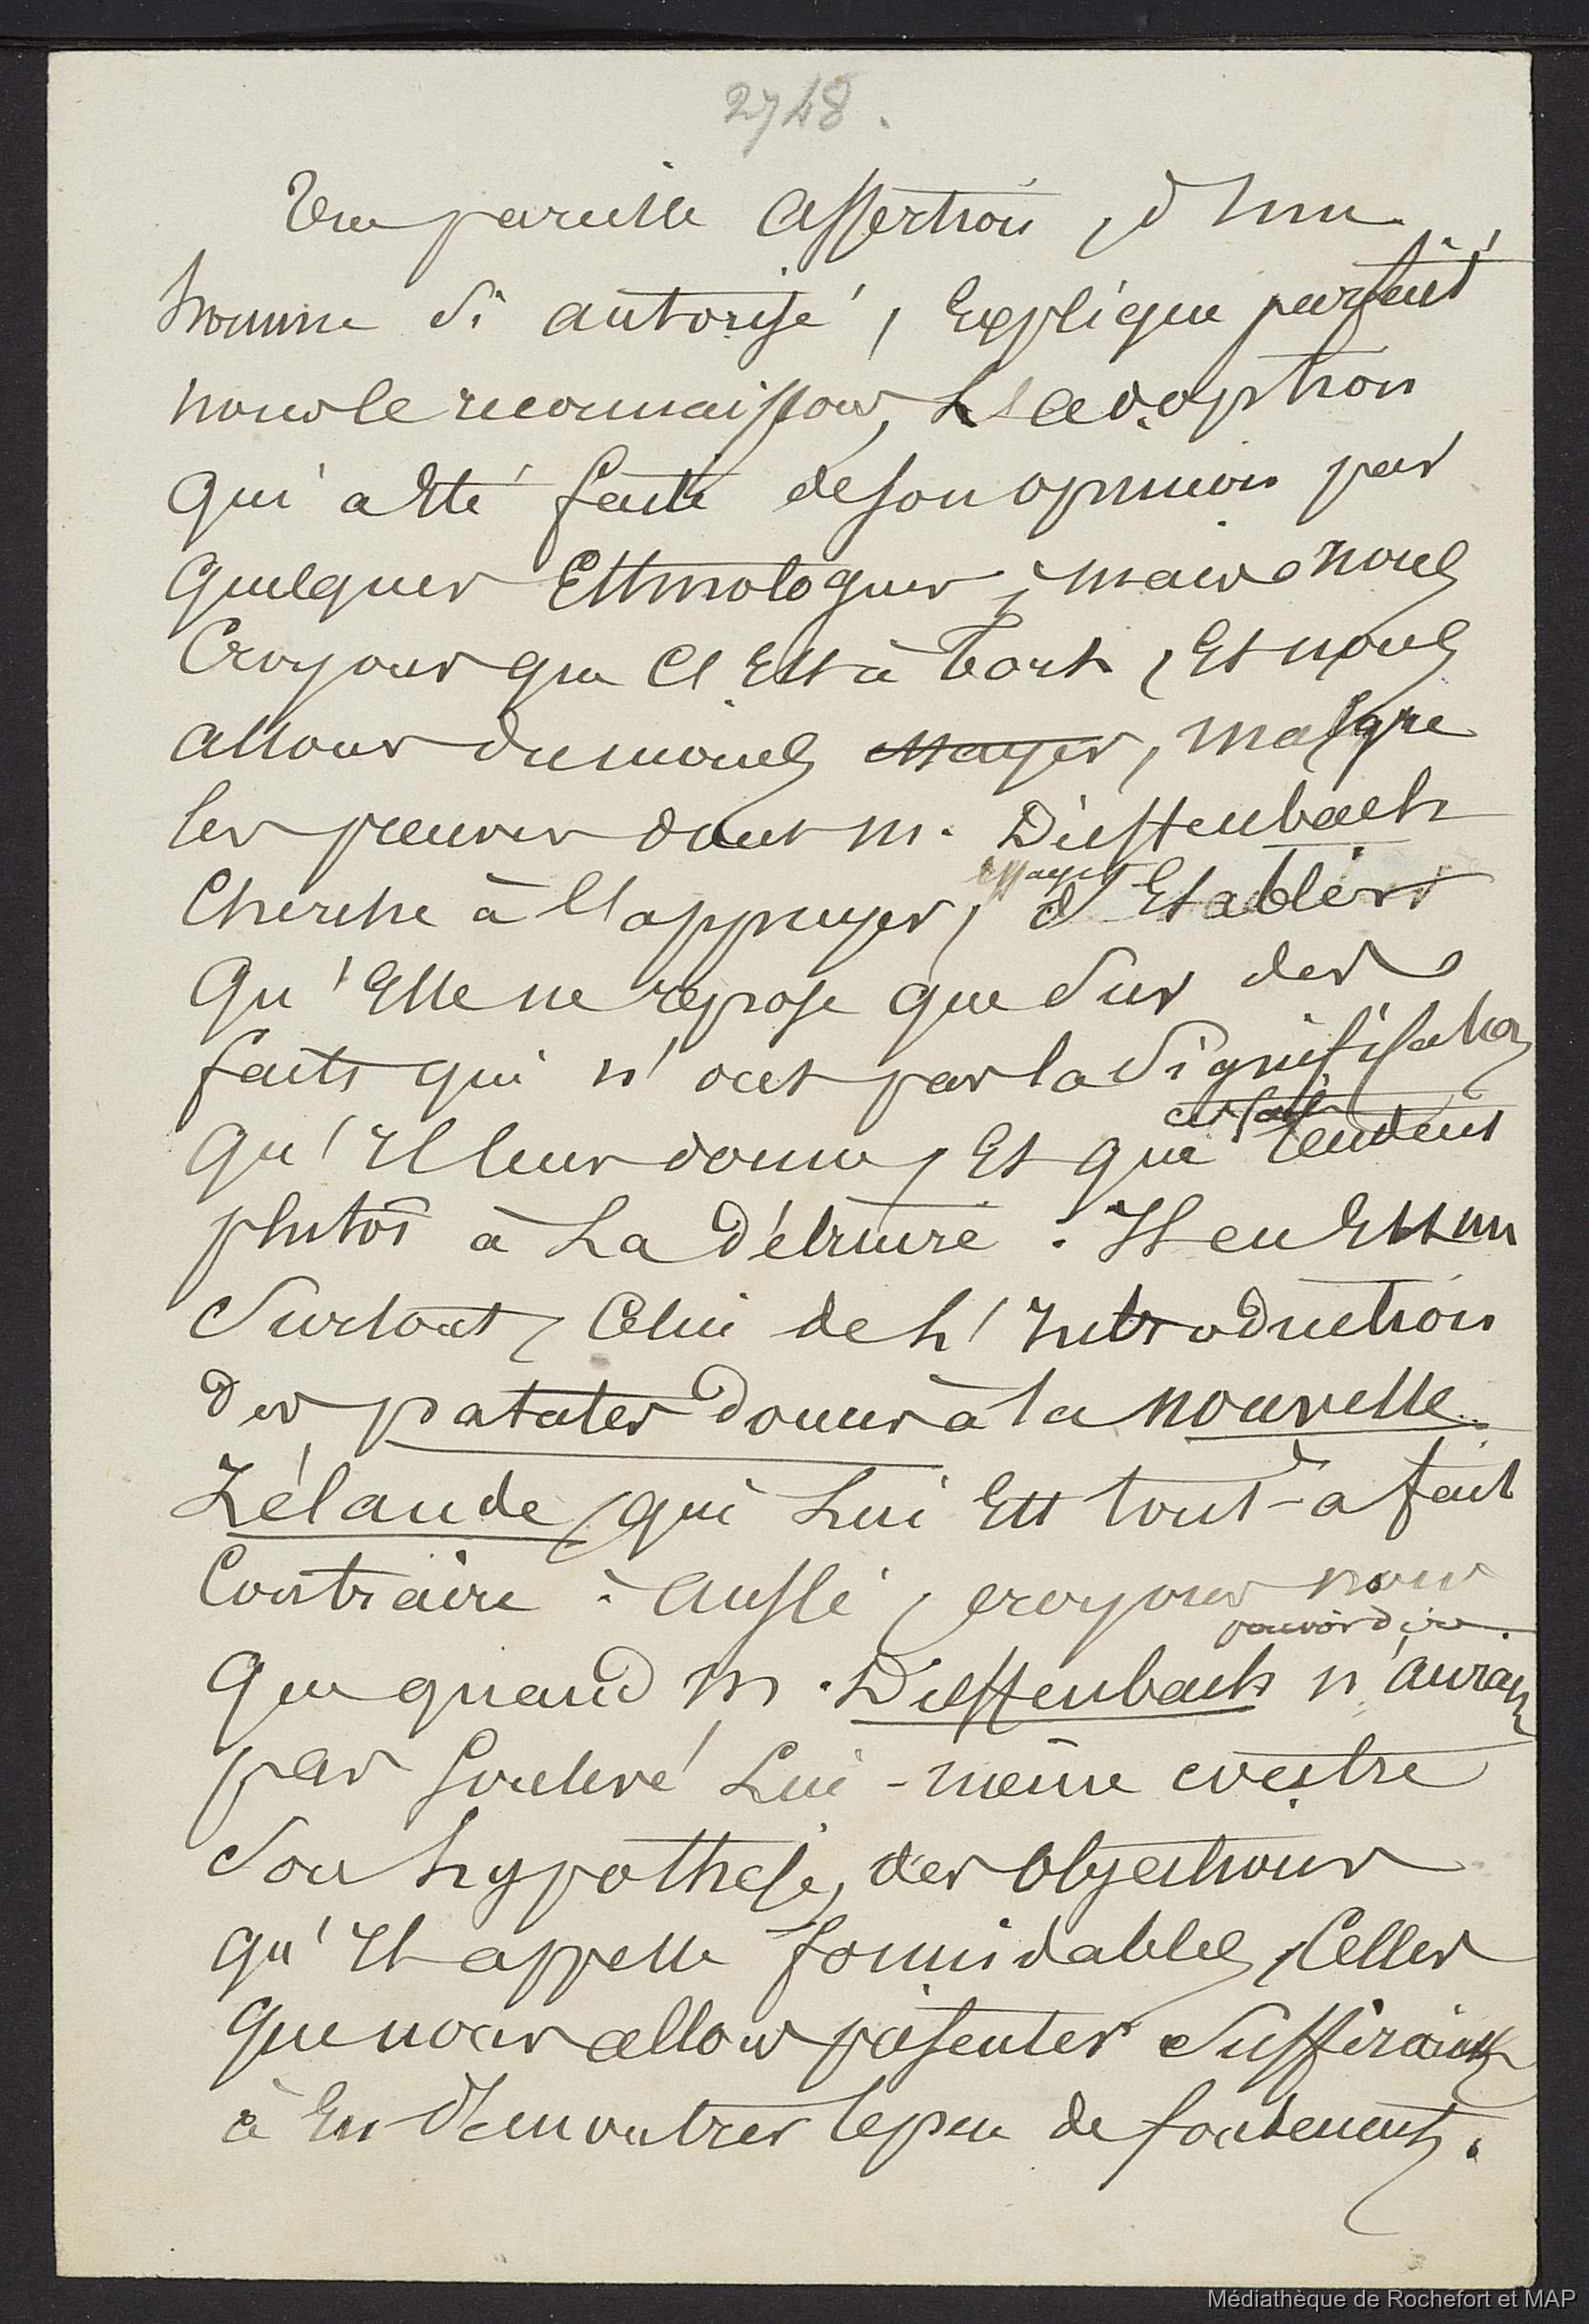 2748.
Une pareille assertion, d'un
homme si autorisé, explique parfait,
nous le reconnaissons, l'adoption
qui a été faite de son opinion par
quelques Ethnologues ; mais nous
croyons que c'est à tort, et nous
allons du moins essayer, malgré
les preuves dont M. Dieffenbach
essayer
cherche à l'appuyer, d'Etablir
qu'elle ne repose que sur des
faits qui n'ont pas la signification
ces faits
qu'il leur donne, et que tendent
plutôt à la détruire. Il en est un
surtout, celui de l'Introduction
des patates douces à la nouvelle-
Zélande, qui lui est tout-à-fait
contraire : aussi, croyons nous
pouvoir dire
que quand M. Dieffenbach n'aurait
pas soulevé lui-même contre
son hypothèse, des objections
qu'il appelle formidables, celles
que nous allons présenter suffiraient
à en démontrer le peu de fondement.
Médiathèque de Rochefort et MAP